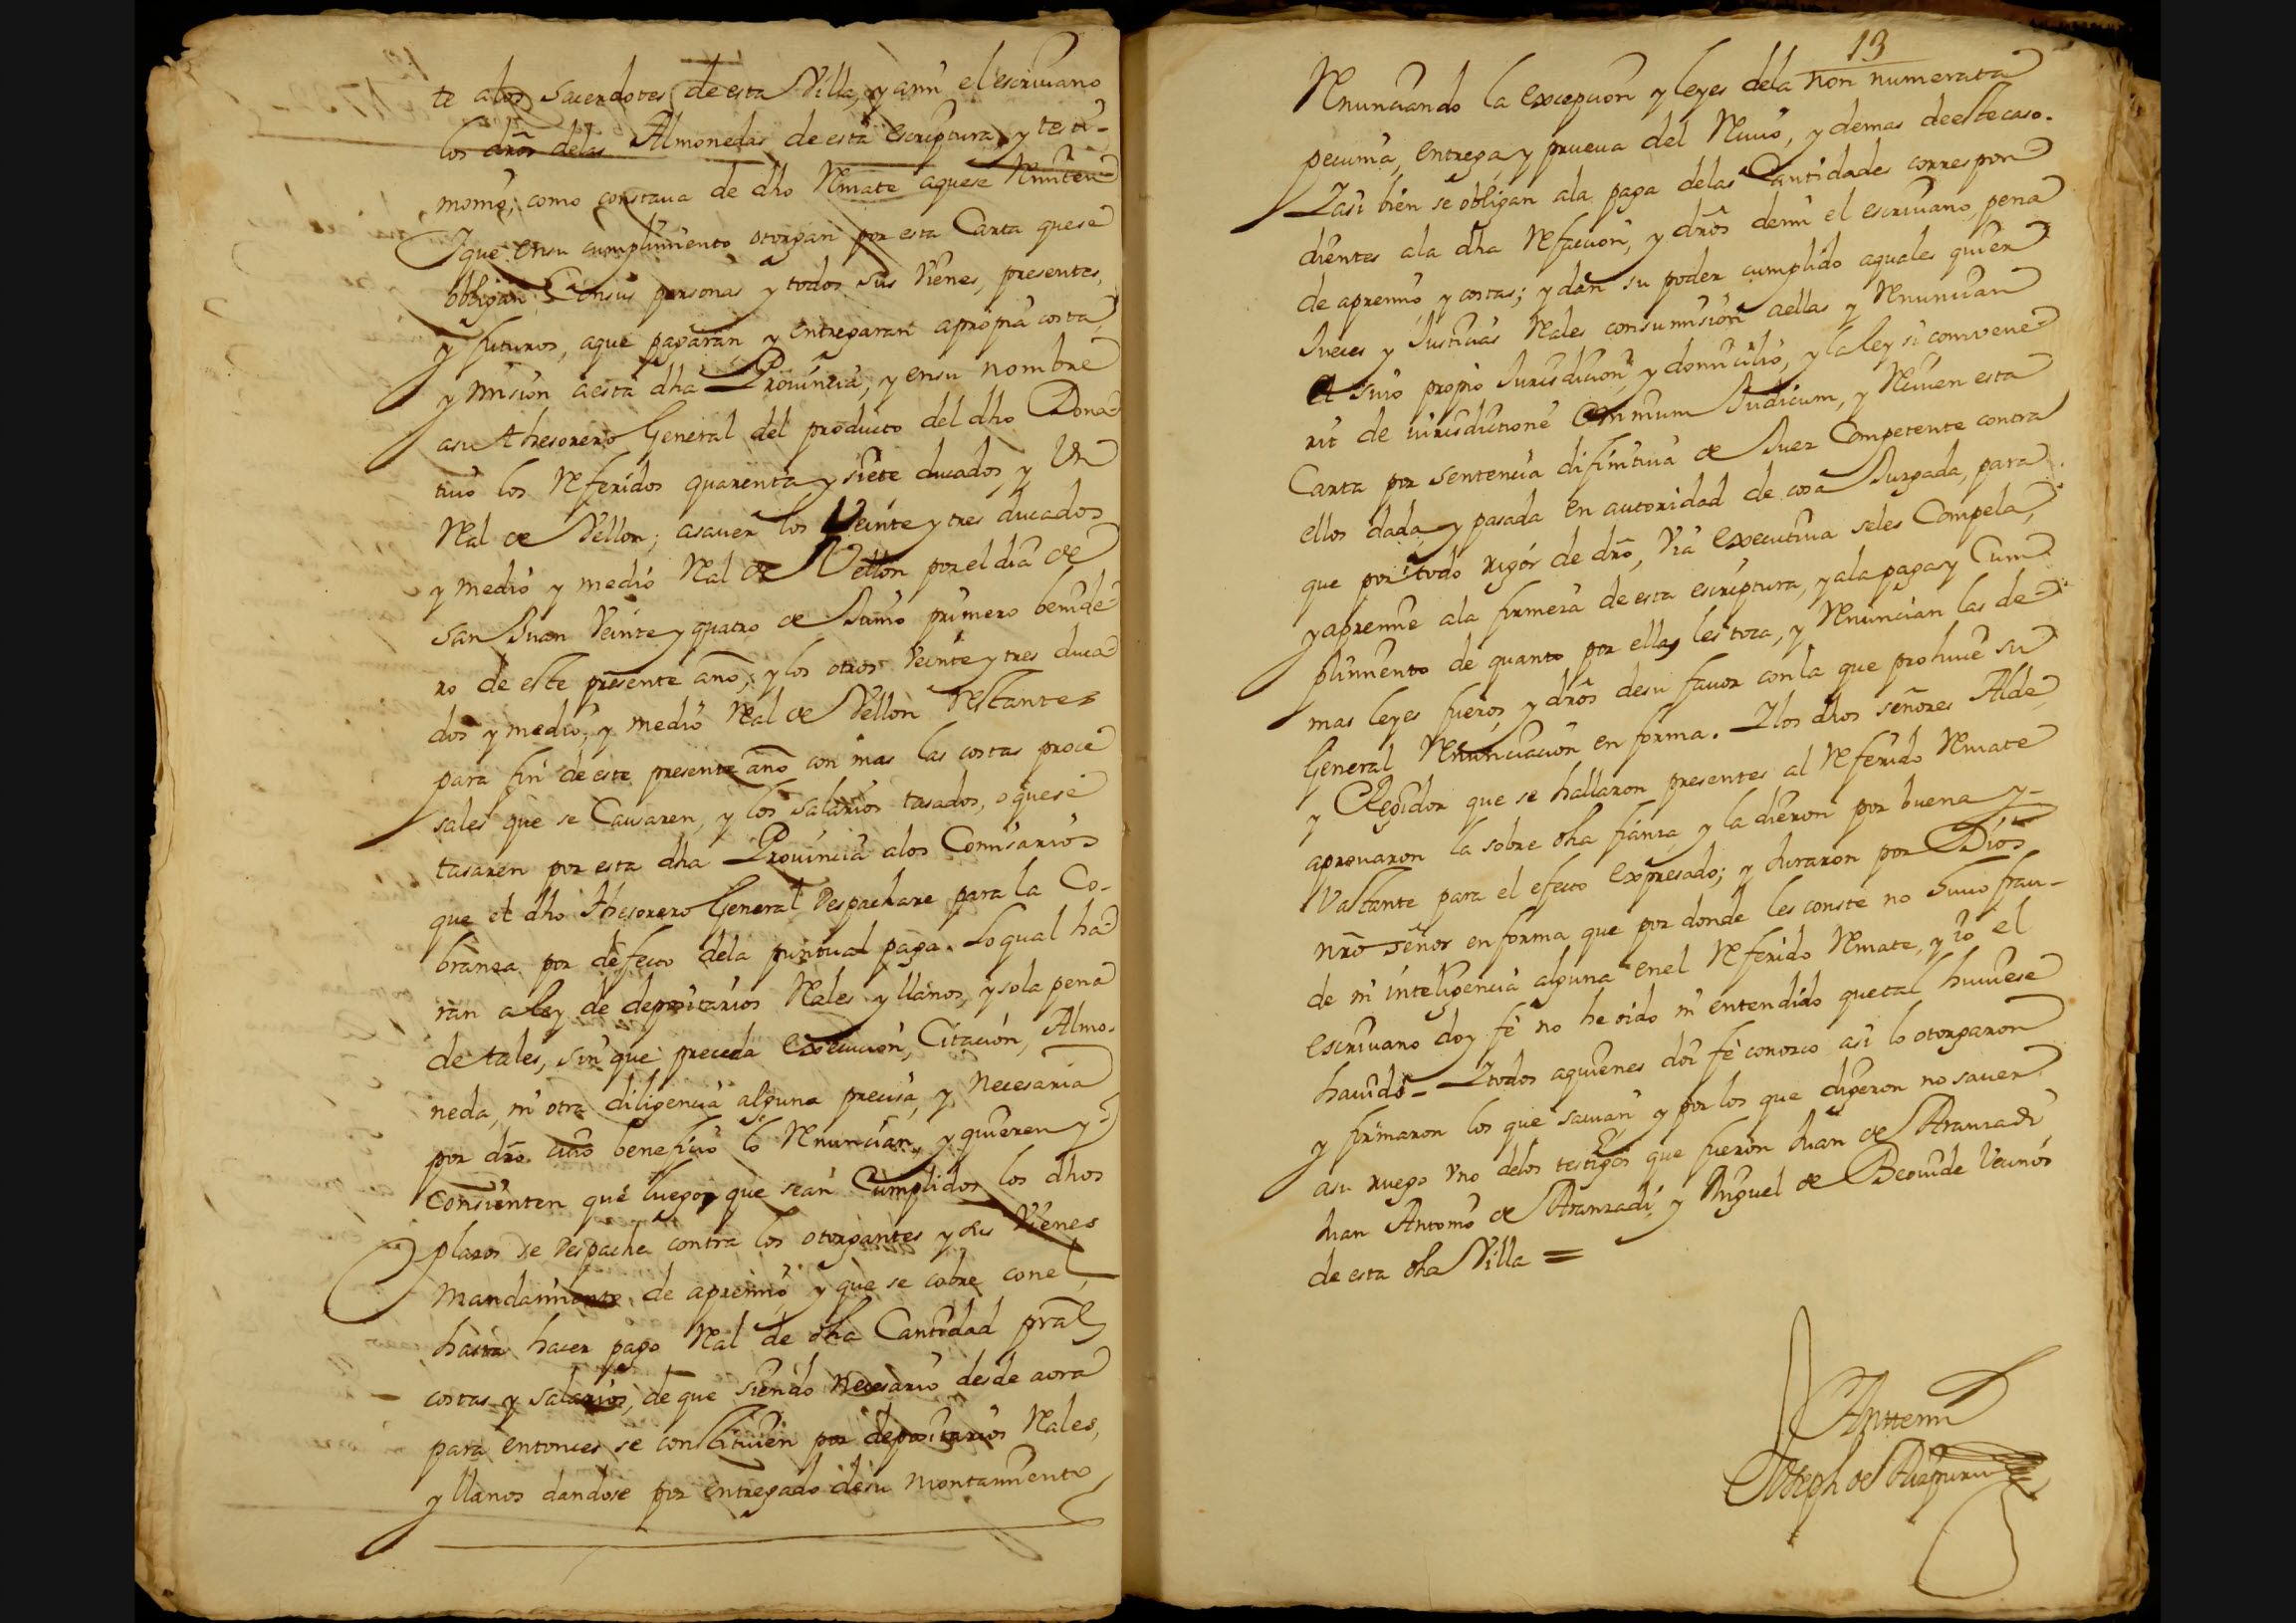 te alos Sacerdotes de esta Villa, y ami el escrivano
los dr̃os delas Almonedas de esta escriptura y testi-
monio; como constava de dho Rmate aquese Rmiten
Ỹ que ensu cumplimiento otorgan por esta Carta quese
obligan Consus personas y todos sus Vienes, presentes,
y futuros, aque pagaran y entregaran apropia costa,
y mision aesta dha Provincia, y ensu nombre
asu Thesorero General del producto del dho Dona
tivo los Referidos quarenta y siete ducados, y Un
Real de Vellon; asaver los Veinte y tres ducados
y medio y medio Real de Vellon por el dia de
San Juan Veinte y quatro de Junio primero benide
ro de este presente año, y los otros Veinte y tres duca
dos y medio, y medio Real de Vellon Restantes
para fin de este presente año con mas las costas proce
sales que se Causaren, y los Salarios tasados, o quese
tasaren por esta dha Provincia alos Comisarios
que el dho Thesorero General Despachare para la Co-
branza por defecto dela puntual paga. Lo qual ha
ran a ley de depositarios Reales y llanos, y sola pena
de tales, sin que preceda execucion, Citacion, Almo-
neda, ni otra diligencia alguna precisa, y Necesaria
por dr̃o cuio beneficio lo Renuncian, y quieren y
Consienten que luego que sean Cumplidos los dhos
plazos se Despache contra los otorgantes y sus Vienes
Mandamiento de apremio, y que se cobre conel
hasta hacer pago Real de dha Cantidad pral
costas y Salarios, de que siendo Necesario desde aora
para entonces se constituien por depositarios Reales,
y llanos dandose por entregado desu montamiento
13
Renunciando la excepcion y leyes dela non numerata
pecunia, entrega, y prueva del Recivo, y demas deeste caso.
Y asi bien se obligan ala paga delas Cantidades correspon
dientes ala dha Refaccion, y dr̃os demi el escrivano, pena
de apremio, y costas; y dan su poder cumplido aquales quier
Jueces y Justicias Reales consumision aellas y Renuncian
el suio propio Jurisdicion, y domicilio, y la ley si convene
rit de iurisdictione omnium Judicum, y Reciven esta
Carta por sentencia difinitiva de Juez Competente contra
ellos dada, y pasada en autoridad de cosa Juzgada, para
que por todo rigor de dr̃o, via executiva seles Compela,
y apremie ala firmeza de esta escriptura, y ala paga y Cum
plimiento de quanto por ella les toca, y Renuncian las de
mas leyes fueros, y dr̃os desu favor con la que prohive su
General Renunciacion en forma. Y los dhos señores Alcde
y Regidor que se hallaron presentes al Referido Remate
aprovaron la sobre dha fianza, y la dieron por buena y
Vastante para el efecto expresado; y Juraron por Dios
nr̃o señor en forma que por donde les conste no huvo frau-
de ni inteligencia alguna enel Referido Remate, y io el
escrivano doy fe no he oido ni entendido quetal huviese
havido- Y todos aquienes doi fe conozco asi lo otorgaron
y firmaron los que savian, y por los que digeron no saver
asu ruego Vno delos testigos que fueron Juan de Aranzadi
Juan Antonio de Aranzadi, y Miguel de Beovide Vecinos
de esta dha Villa =
Anttemi
Joseph de